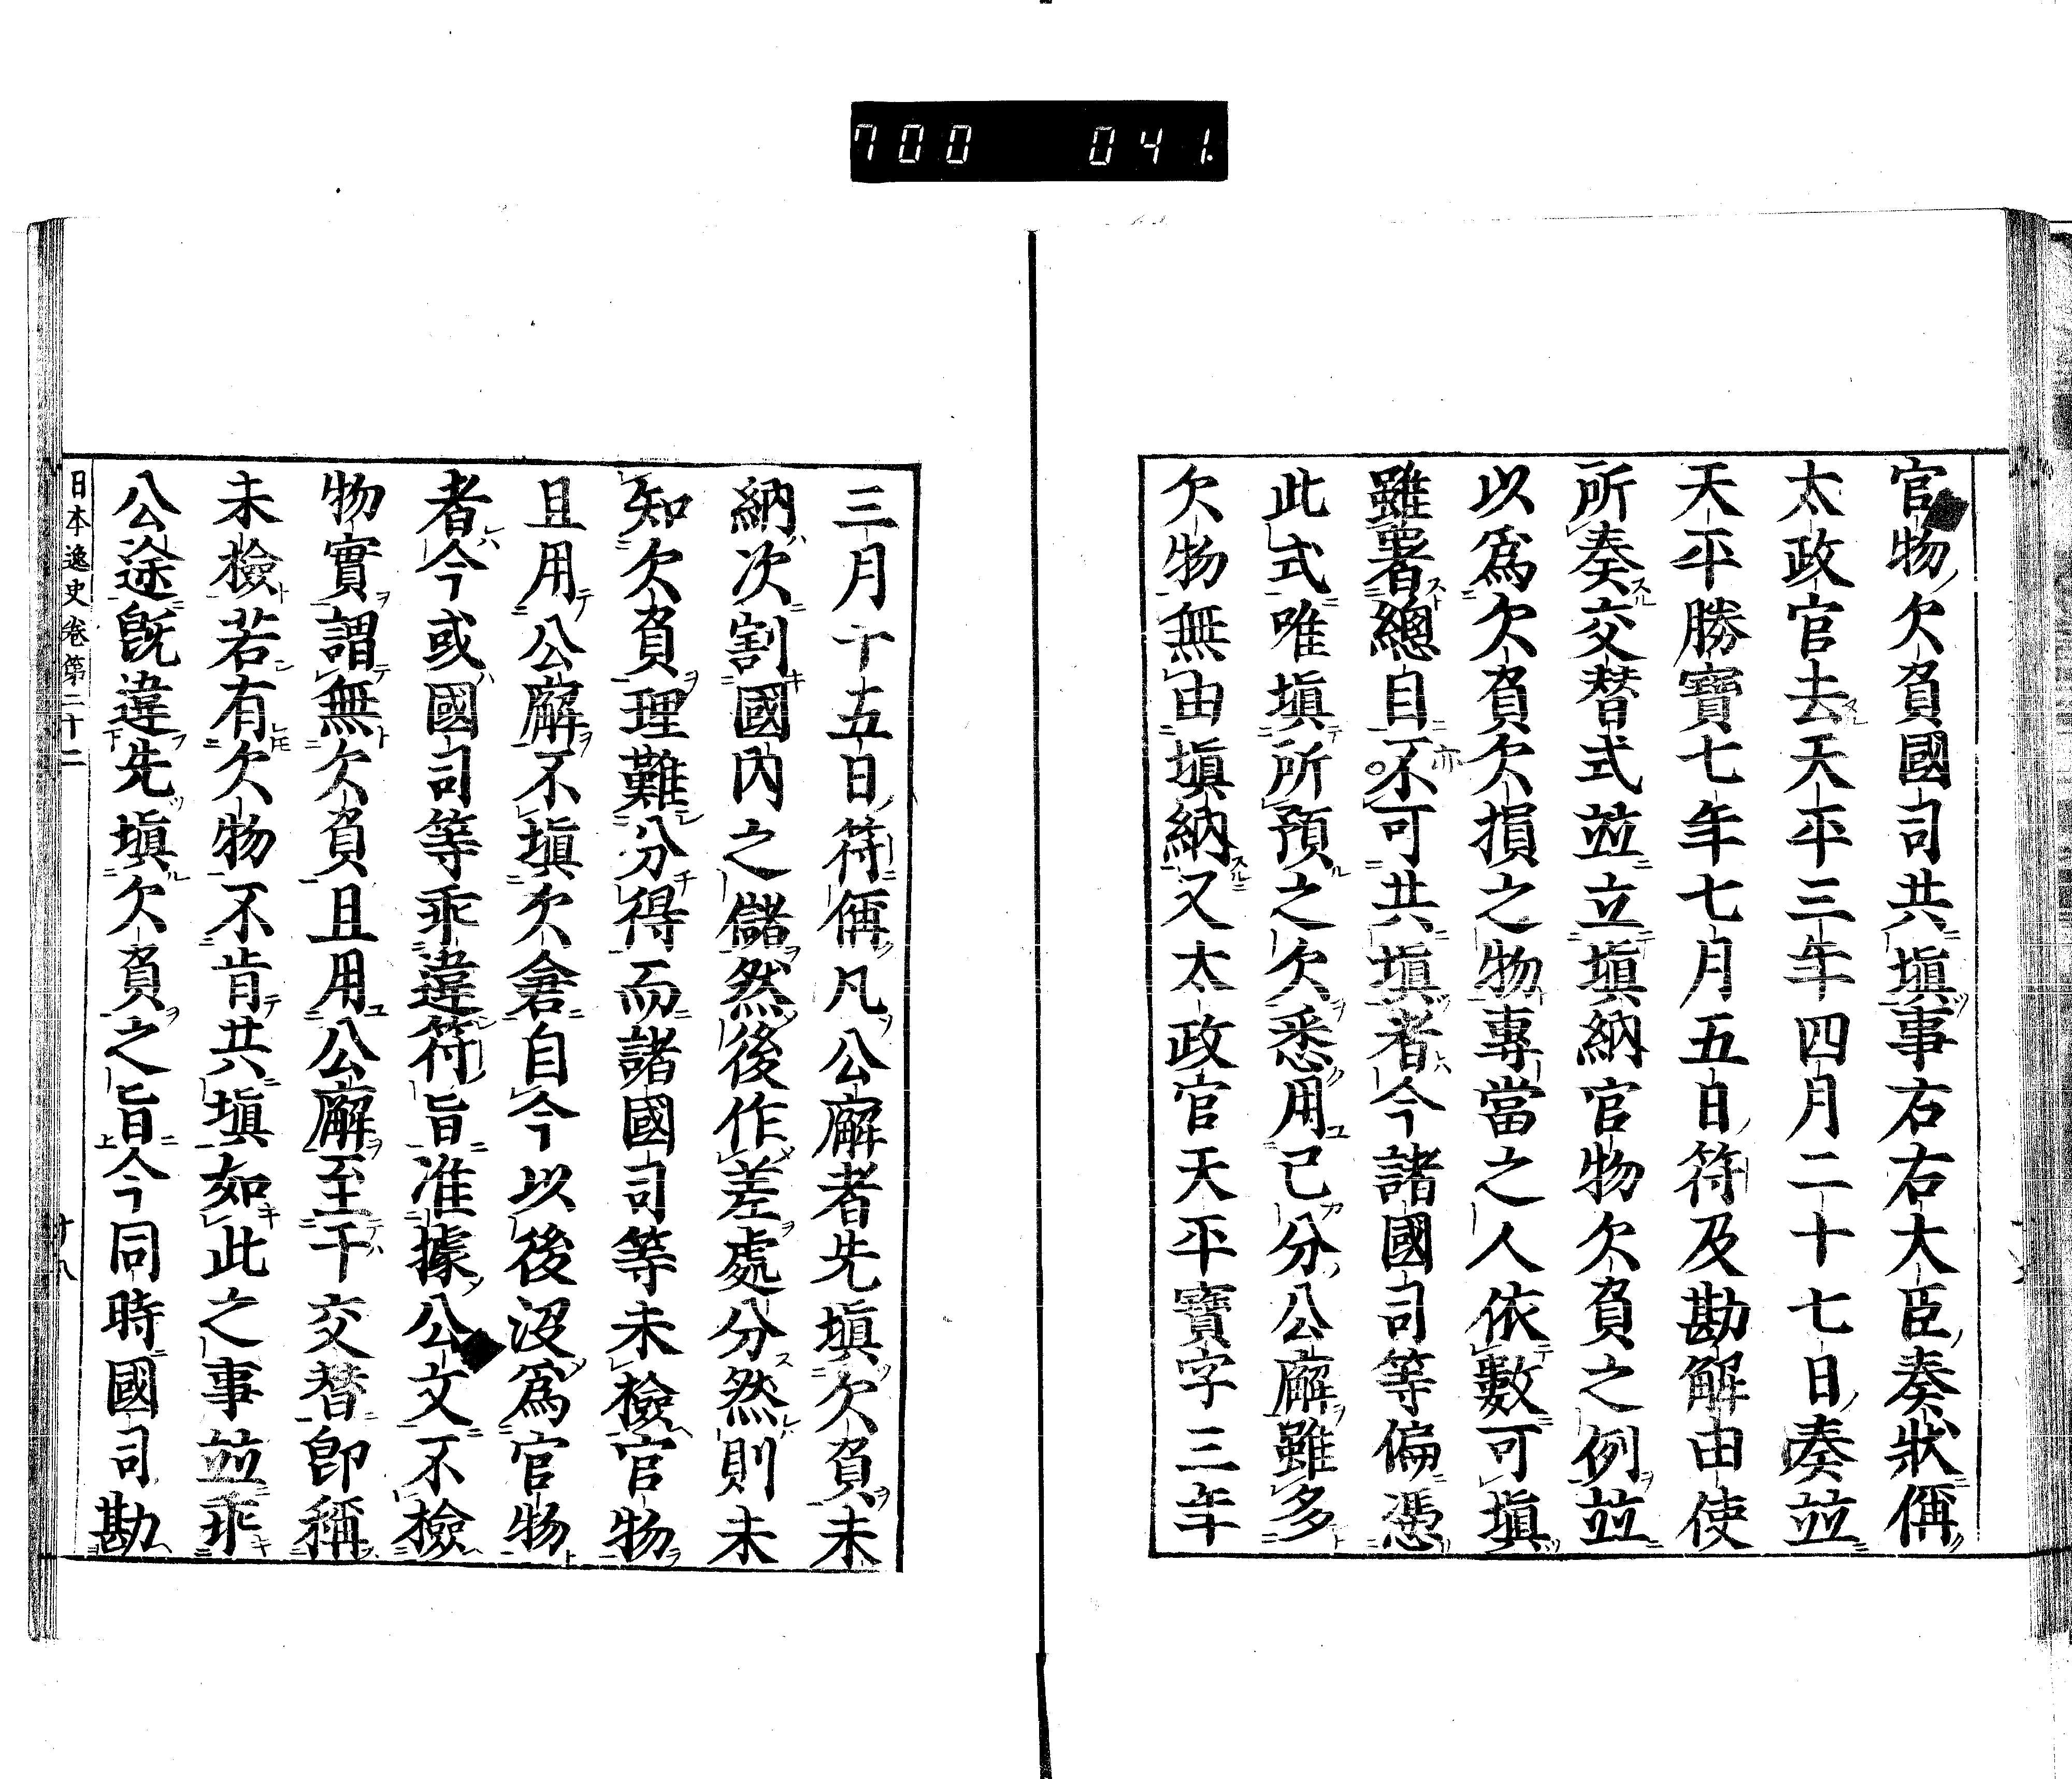 700 041
官物欠負國司共塡事右右大臣奏狀偁
太政官去天平三年四月二十七日奏並
天平勝寶七年七月五日符及勘解由使
所奏交替式並立塡納官物欠負之例並
以爲欠負欠損之物專當之人依數可塡
雖署總目不可共塡者今諸國司等偏憑
此式唯塡所預之欠悉用己分公廨雖多
欠物無由塡納又太政官天平寶字三年
三月十五日符偁凡公廨者先塡欠負未
納次割國内之儲然後作差處分然則未
知欠負理難分得而諸國司等未檢官物
且用公廨不塡欠倉自今以後沒爲官物
者今或國司等乖違符旨准據公文不檢
物實謂無欠負且用公廨至于交替卽稱
未檢若有欠物不肯共塡如此之事並乖
公途旣違先塡欠負之旨今同時國司勘
日本逸史卷第二十二